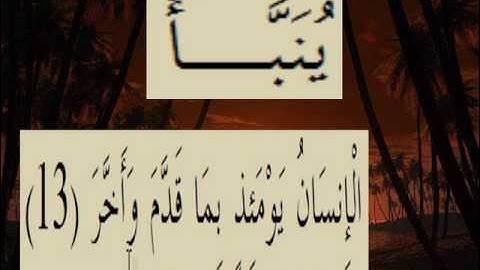 يُنَبَّأُ
الْإِنسَانُ يَوْمَئِذٍ بِمَا قَدَّمَ وَأَخَّرَ (13)